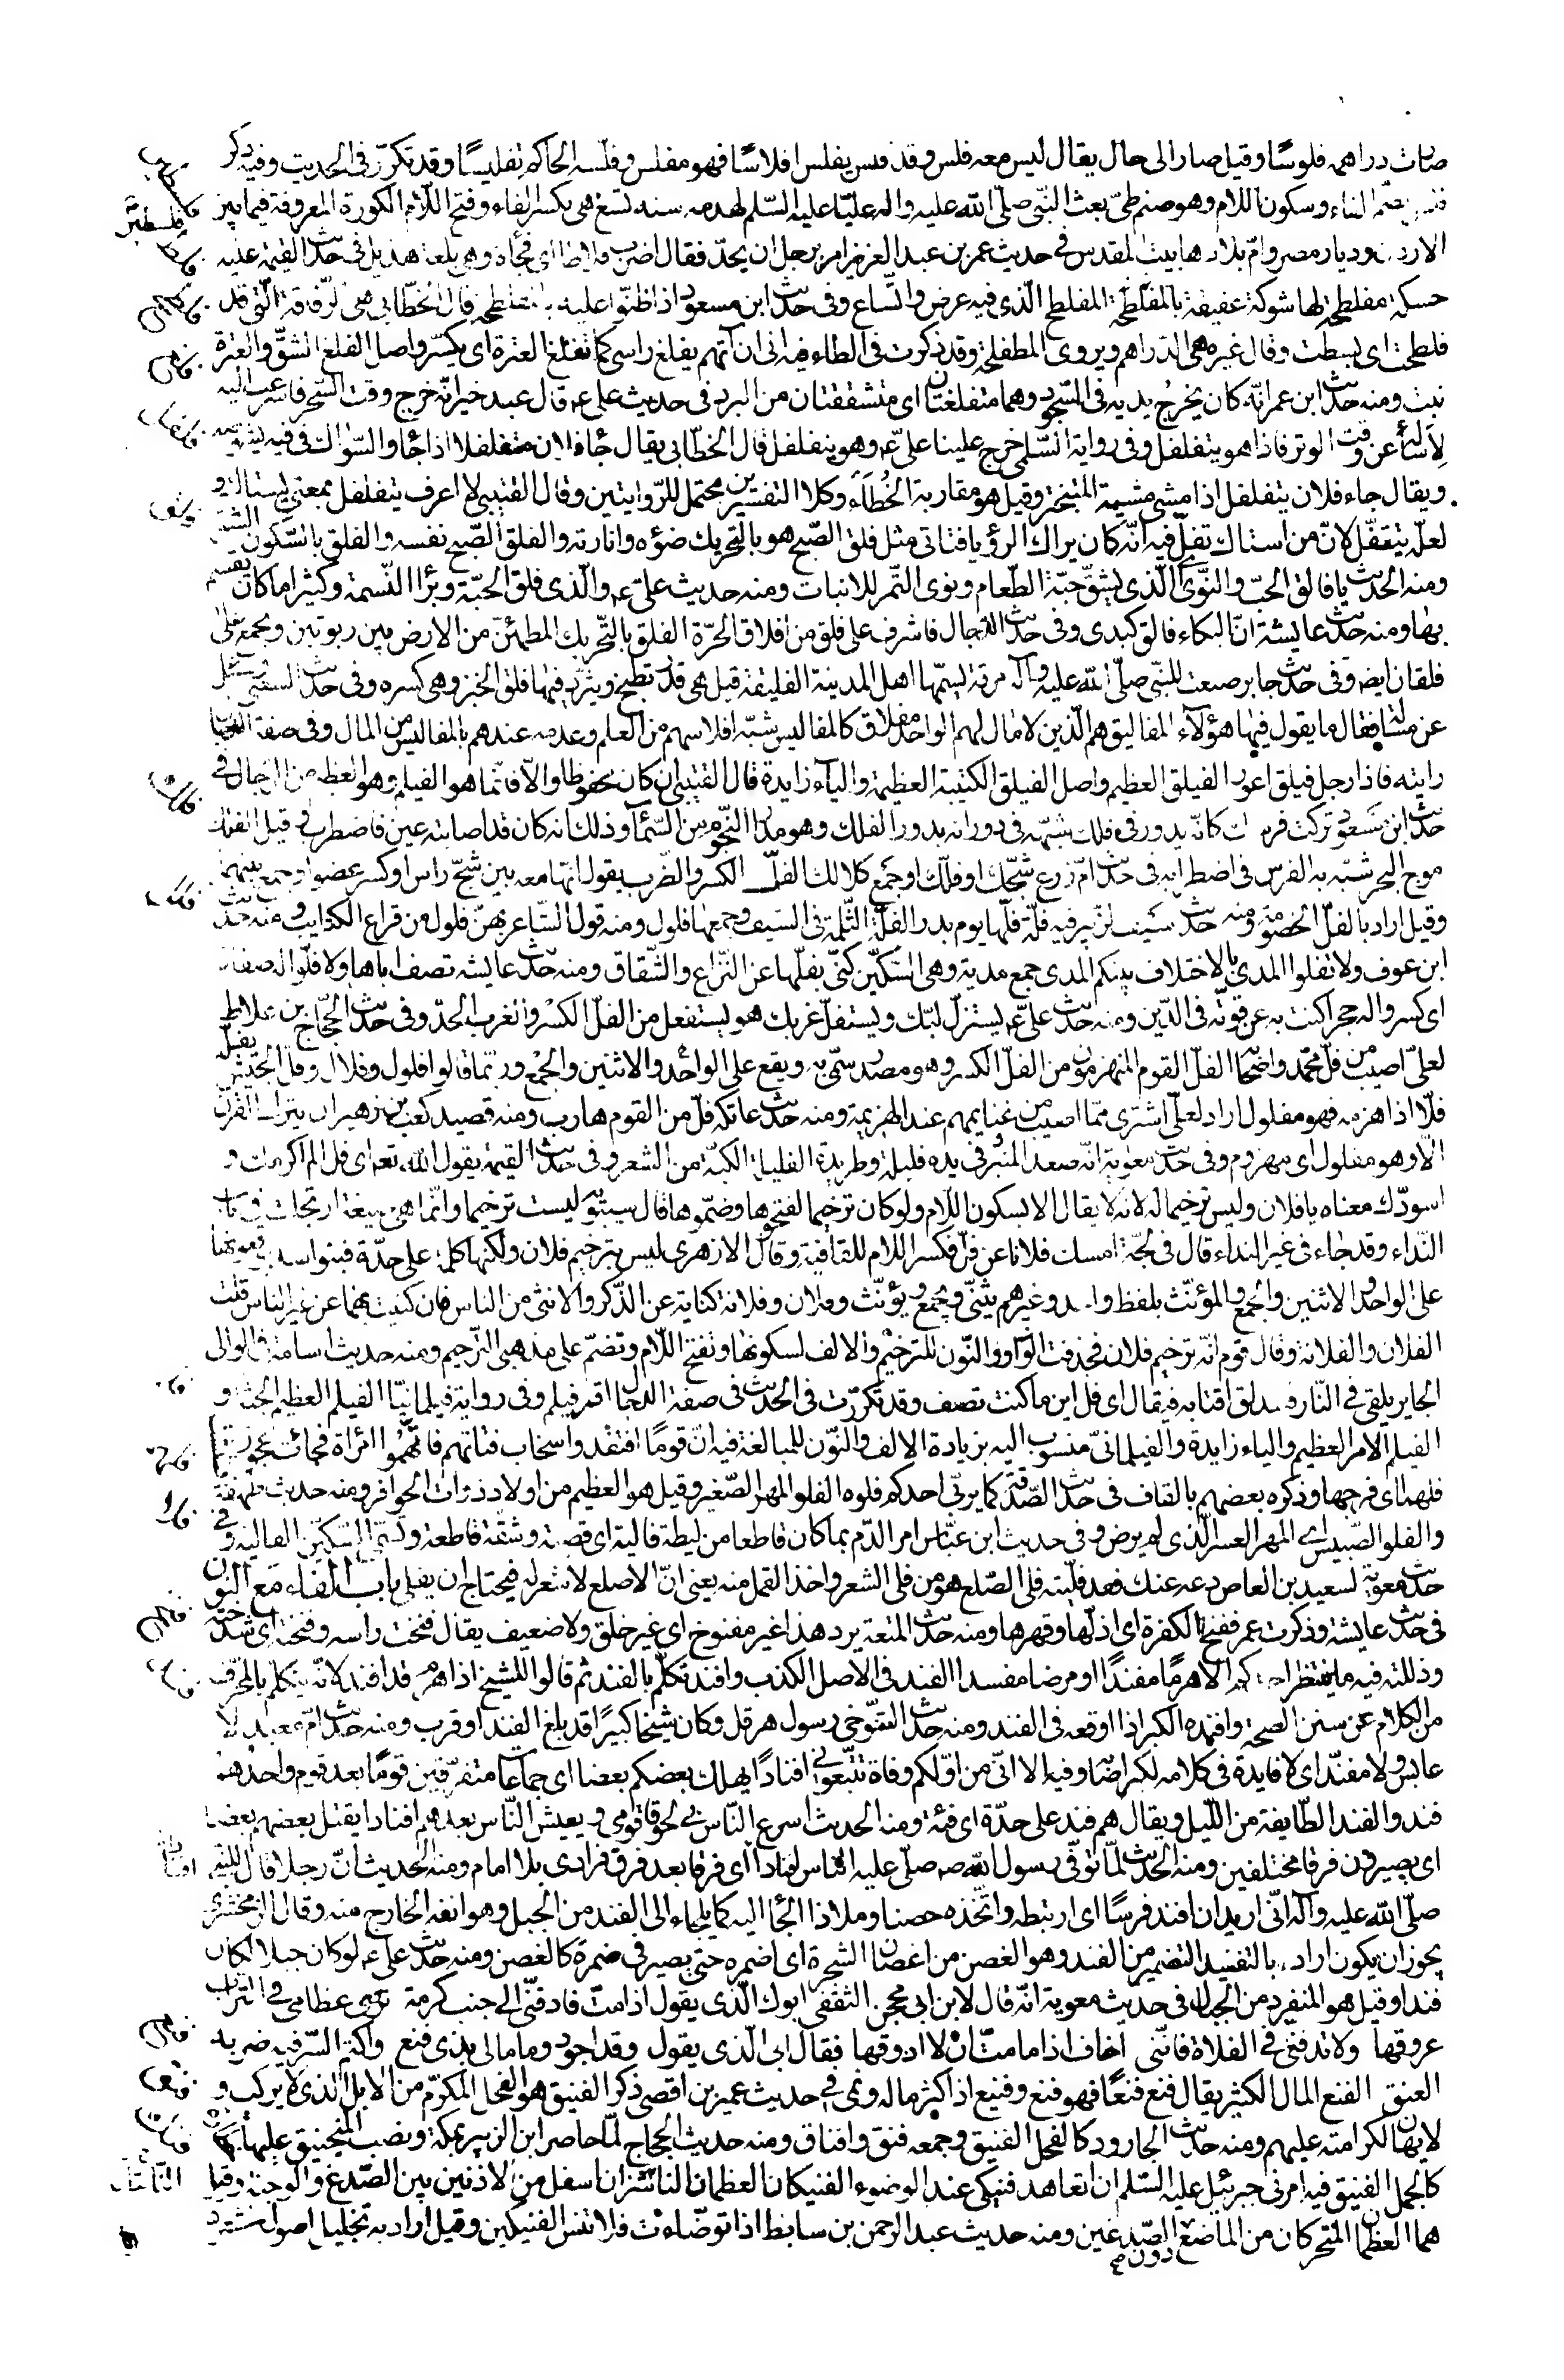 صارت دراهمه فلوسًا وقيل صار الى حال يقال ليس معه فلس وقد فلس يفلس افلاسًا فهو مفلس وفلّسه الحاكم تفليسًا وقد تكرّر فى الحديث وفيه ذكر
بضم الفاء وسكون اللام وهو صنم طىّ بعث النّبى صلّى الله عليه واله عليّا عليه السّلم لهدمه سنه تسع هى بكسر الفاء وفتح اللام الكورة المعروفة فيما بين
الاردن وديار مصر وامّ بلادها بيت المقدس فى حديث عمر بن عبد العزيز امر برجل ان يحدّ فقال اضرب فلاطا اى فجأة وهى بلغة هذيل فى حديث القيمة عليه
حسكة مفلطحة لها شوكة عقيفة بالمفلطحة المفلطح الّذى فيه عرض واتّساع وفى حديث ابن مسعود اذا ظنّوا عليه بالمفلطحة قال الخطّابى هى الرّقاقة الّتى قد
فلطحت اى بسطت وقال غيره هى الدّراهم ويروى المطفلحة وقد ذكرت فى الطاء فيه انى ان آتهم يفلغ راسى كما تفلغ العترة اى يكسّر واصل الفلغ الشقّ والعترة
نبت ومنه حديث ابن عمر انّه كان يخرج يديه فى السّجود وهما متفلغتان اى متشقّقتان من البرد فى حديث على ع قال عبد خير انّه خرج وقت السّحر فاسرعت اليه
لأسأله عن وقت الوتر فاذا هو يتفلفل وفى رواية السّلمى خرج علينا علىّ ع وهو يتفلفل قال الخطّابى يقال جاء فلان متفلفلا اذا جاء والسّواك فى فيه يشوصه
ويقال جاء فلان يتفلفل اذا مشى مشية المتبختر وقيل هو مقاربة الخُطاء وكلا التفسيرين محتمل للرّوايتين وقال القتيبى لا اعرف يتفلفل بمعنى يستاك و
لعلّه يتقفّل لانّ من استاك تفل فيه انّه كان يرا ك الرؤيا فتاتى مثل فلق الصّبح هو بالتحريك ضوءه وانارته والفلق الصّبح نفسه والفلق بالسّكون الشق
ومنه الحديث يا فالق الحبّ والنّوى الّذى يشقّ حبّة الطّعام ونوى التّمر للانبات ومنه حديث علىّ ع والّذى فلق الحبّة وبرأ النّسمة وكثيرا ما كان يقسم
بها ومنه حديث عايشة انّ البكاء فالق كبدى وفى حديث الدّجال فاشرف على فلق من افلاق الحرّة الفلق بالتّحريك المطمئنّ من الارض بين ربوتين ويجمع على
فلقان ايضا وفى حديث جابر صنعت للنّبى صلّى الله عليه وآله مرقة يسمّيها اهل المدينة الفليقة قيل هى قدر تطبخ ويثرد فيها فلق الخبز وهى كسره وفى حديث الشعبى سئل
عن مسئلة فقال ما يقول فيها هؤلآء المفاليق هم الّذين لا مال لهم الواحد مفلاق كالمفاليس شبّه افلاسهم من العلم وعدمه عندهم بالمفاليس من المال وفى صفة الدجال
رايته فاذا رجل فيلق اعور الفيلق العظيم واصل الفيلق الكتيبة العظيمة والياء زايدة قال القتيبى ان كان محفوظا والّا فانّما هو الفيلم وهو العظيم من الرّجال فى
حديث ابن مسعود تركت فرسك كانّه يدور فى فلك شبّهه فى دورانه بدور الفلك وهو مدار النّجوم من السّمآء وذلك انه كان قد اصابته عين فاضطرب وقيل الفلك
موج البحر شبّه به الفرس فى اضطرابه فى حديث امّ زرع شجّك او فلّك او جمع كلا لك الفلّ الكسر والضّرب يقول انّها معه بين شجّ راس او كسر عضو او جمع بينهما
وقيل اراد بالفلّ الخصومة ومنه حديث سيف الزّبير فيه فلّة فلّها يوم بدر الفلّة الثّلمة فى السّيف وجمعها فلول ومنه قول الشّاعر بهنّ فلول من قراع الكتايب ومنه حديث
ابن عوف ولا تفلوا المدى بالاختلاف بينكم المدى جمع مدية وهى السّكّين كنّى بفلّها عن النّزاع والشّقاق ومنه حديث عايشه تصف اباها ولا فلّوا له صفاة
اى كسروا له حجرا كنت به عن قوّته فى الدّين ومنه حديث علىّ ع يستزلّ لبّك ويستفلّ غربك هو يستفعل من الفلّ الكسر والغرب الحدّ وفى حديث الحجّاج بن علاط
لعلّى اصيب من فلّ محمّد واصحابه الفلّ القوم المنهزمون من الفلّ الكسر وهو مصدر سمّى به ويقع على الواحد والاثنين والجمع وربّما قالوا فلول وفلال وفلّ الجيش يفلّه
فلّا اذا هزمه فهو مفلول اراد لعلّى اشترى ممّا اصيب من غنايمهم عند الهزيمة ومنه حديث عاتكه فلّ من القوم هارب ومنه قصيد كعب بن زهير ان يترك القرن
الّا وهو مفلول اى مهزوم وفى حديث معوية انّه صعد المنبر وفى يده فليلة وطريدة الفليلة الكبّة من الشعر وفى حديث القيمة يقول الله تعم اى فل الم اكرمك و
اسوّدك معناه يا فلان وليس ترخيما له لانه لا يقال الا بسكون اللام ولو كان ترخيما لفتحوها وضمّوها قال سيبويه ليست ترخيما وانّما هى صيغة ارتجلت فى باب
النّداء وقد جاء فى غير النداء قال فى لجّة امسك فلانا عن فل فكسر اللام للقافية وقال الازهرى ليس بترخيم فلان ولكنها كلمة على حدّة فبنو اسد يوقعونها
على الواحد والاثنين والجمع والمؤنّث بلفظ واحد وغيرهم يثنّى ويجمع ويؤنّث وفلان وفلانة كناية عن الذّكر والانثى من الناس فان كنيت بهما عن غير الناس قلت
الفلان والفلانة وقال قوم انّه ترخيم فلان فحذفت الواو والنّون للتّرخيم والالف لسكونها وتفتح اللّام وتضمّ على مذهبى التّرخيم ومنه حديث اسامة فى الوالى
الجاير يلقى فى النّار فتندلق اقتابه فيقال اى فل اين ما كنت تصف وقد تكرّرت فى الحديث فى صفة الدجال اقمر فيلم وفى رواية فيلمانيّا الفيلم العظيم الجثّة و
الفيلم الامر العظيم والياء زايدة والفيلمانىّ منسوب اليه بزيادة الالف والنّون للمبالغة فيه انّ قومًا افتقدوا سخاب فتاتهم فاتّهموا امرأة فجائت عجوز ففتشت
فلهمها اى فرجها وذكره بعضهم بالقاف فى حديث الصّدقة كما يربّى احدكم فلوه الفلو المهر الصّغير وقيل هو العظيم من اولاد ذوات الحوافر ومنه حديث طهفة
والفلو الضّبيس اى المهر العسر الّذى لم يرض وفى حديث ابن عبّاس امر الدّم بما كان قاطعا من ليطة فالية اى قصبة وشقّة قاطعة وتسمّى السّكّين الفالية وفى
حديث معوية لسعيد بن العاص دعه عنك فقد فليته فلى الصّلع هو من فلى الشعر واخذ القمل منه يعنى انّ الاصلع لا شعر له فيحتاج ان يفلى باب الفاء مع النون
فى حديث عايشة وذكرت عمر ففنخ الكفرة اى اذلّها وقهرها ومنه حديث المتعة برد هذا غير مفنوخ اى غير خلق ولا ضعيف يقال فنخت راسه وفنخته اى شدخته
وذللته فيه ما ينتظر احدكم الا هرمًا مفندًا او مرضا مفسدا الفند فى الاصل الكذب وافند تكلّم بالفند ثم قالوا للشيخ اذا هرم قد افند لانّه يتكلّم بالمحرّف
من الكلام عن سنن الصحة وافنده الكبر اذا اوقعه فى الفند ومنه حديث التنوّخى رسول هرقل وكان شيخا كبيرًا قد بلغ الفند او قرب ومنه حديث امّ معبد لا
عابس ولا مفنّد اى لا فايدة فى كلامه لكبر اصابه وفيه الا انّى من اوّلكم وفاة تتّبعونى افنادًا يهلك بعضكم بعضا اى جماعات متفرّقين قومًا بعد قوم واحدهم
فند والفند الطّايفة من اللّيل ويقال هم فند على حدّة اى فئة ومنه الحديث اسرع النّاس بى لحوقا قومى ويعيش النّاس بعدهم افنادا يقتل بعضهم بعضا
اى يصيرون فرقا مختلفين ومنه الحديث لمّا توفّى رسول الله صه صلّى عليه الناس افنادا اى فرقا بعد فرق فرادى بلا امام ومنه الحديث انّ رجلا قال للنبى
صلّى الله عليه وآله انّى اريد ان افند فرسًا اى ارتبطه واتّخذه حصنا وملاذا الجأ اليه كما يلجاء الى الفند من الجبل وهو انفه الخارج منه وقال الزمخشرى
يجوز ان يكون اراد بالتفنيد التضمير من الفند وهو الغصن من اغصان الشجرة اى اضمره حتى يصير فى ضمرة كالغصن ومنه حديث على ع لو كان جبلا لكان
فندا وقيل هو المنفرد من الجبال فى حديث معوية انّه قال لابن ابى محجن الثقفى ابوك الّذى يقول اذا متّ فادفنّى الى جنب كرمة تروى عظامى فى التّرب
عروقها ولا تدفننى فى الفلاة فانّنى اخاف اذا ما متّ ان لا اذوقها فقال ابى الّذى يقول وقد اجود وما مالى بذى فنع واكتم السّر فيه ضربة
العنق الفنع المال الكثير يقال فنع فنعًا فهو فنع وفنيع اذا كثر ماله ونمى فى حديث عمير بن اقصى ذكر الفنيق هو الفحل المكرّم من الابل الّذى لا يركب و
لا يهان لكرامته عليهم ومنه حديث الجارود كالفحل الفنيق وجمعه فنق وافناق ومنه حديث الحجاج لمّا حاصر ابن الزبير بمكة ونصب المنجنيق عليها خطّارة
كالجمل الفنيق فيه امرنى جبرئيل عليه السّلم ان اتعاهد فنيكى عند الوضوء الفنيكان العظمان الناشزان اسفل من الاذنين بين الصّدغ والوجنة وقيل
هما العظمان المتحركان من الماضغ دون الصّدغين ومنه حديث عبد الرحمن بن سابط اذا توضّاءت فلا تنس الفنيكين وقيل اراد به تخليل اصول شعر